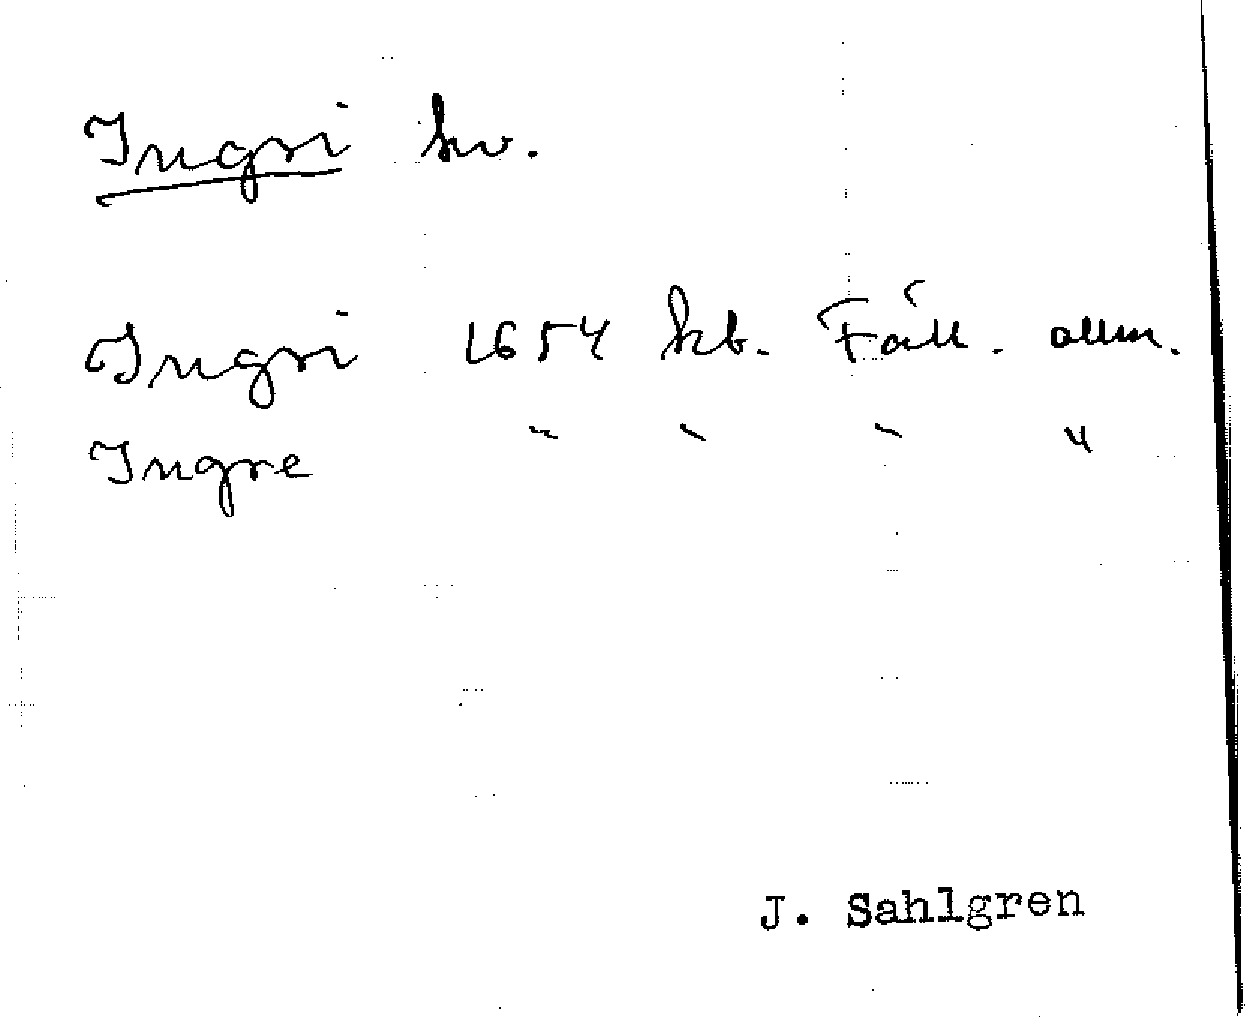 Ingri kv.
Ingri 1654 kb. Fäll. allm.
Ingre " " " "
J. Sahlgren